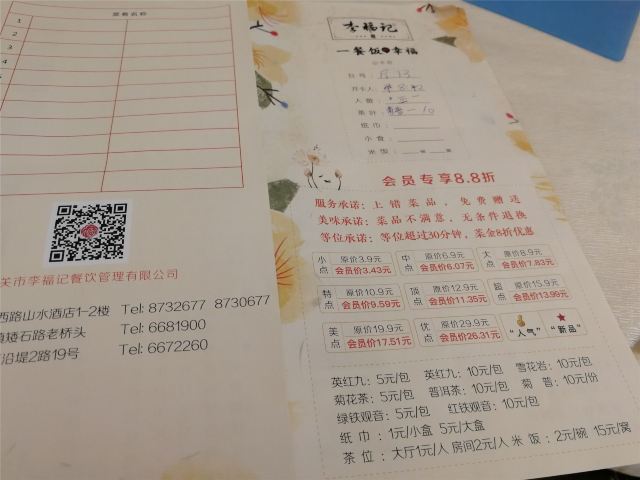 菜肴名称
1
2
3
4
5
6
7
8
9
10
关市李福记餐饮管理有限公司
西路山水酒店1-2楼 Tel: 8732677 8730677
镇矮石路老桥头 Tel: 6681900
沿堤2路19号 Tel: 6672260
李福记
一餐饭 幸福
台号：
开卡人：
人数：
茶叶：
纸巾：
小食：
米饭：
会员专享8.8折
服务承诺：上错菜品，免费赠送
美味承诺：菜品不满意，无条件退换
等位承诺：等位超过30分钟，菜金8折优惠
小点 原价3.9元 会员价3.43元
中点 原价6.9元 会员价6.07元
大点 原价8.9元 会员价7.83元
特点 原价10.9元 会员价9.59元
顶点 原价12.9元 会员价11.35元
超点 原价15.9元 会员价13.99元
美点 原价19.9元 会员价17.51元
优点 原价29.9元 会员价26.31元
“人气” “新品”
英红九：5元/包 英红九：10元/包 雪花岩：10元/包
菊花茶：5元/包 普洱茶：10元/包 菊普：10元/份
绿铁观音：5元/包 红铁观音：10元/包
纸巾：1元/小盒 5元/大盒
茶位：大厅1元/人 房间2元/人 米饭：2元/碗 15元/窝